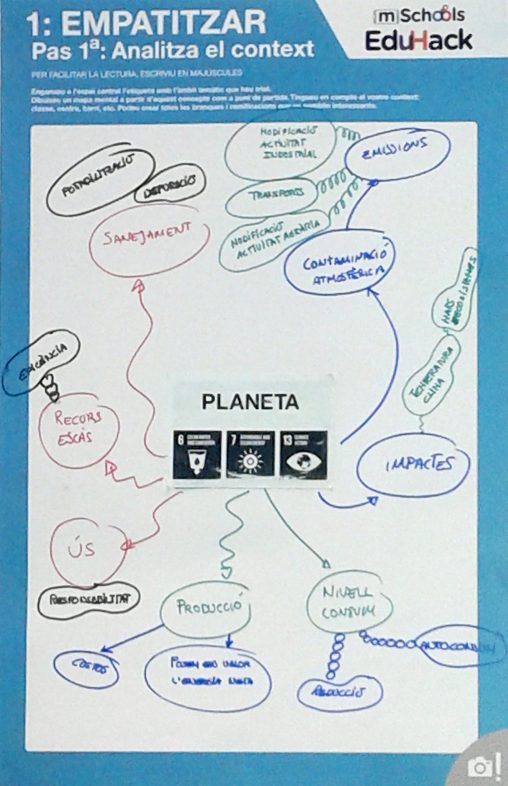 1: EMPATITZAR
Pas 1ª: Analitza el context
[m]Schools
EduHack
PER FACILITAR LA LECTURA, ESCRIVIU EN MAJÚSCULES
Enganxeu a l'espai central l'etiqueta amb l'àmbit temàtic que heu triat.
Dibuixeu un mapa mental a partir d'aquest concepte com a punt de partida. Tingueu en compte el vostre context:
classe, centre, barri, etc. Podeu crear totes les branques i ramificacions que us semblin interessants.
MODIFICACIÓ
ACTIVITAT
INDUSTRIAL
EMISSIONS
TRANSPORTS
MODIFICACIÓ
ACTIVITAT AGRÀRIA
POTABILITZACIÓ
DEPURACIÓ
SANEJAMENT
CONTAMINACIÓ
ATMOSFÈRICA
TEMPERATURA
CLIMA
EFICIÈNCIA
RECURS
ESCÀS
PLANETA
6 CLEAN WATER AND SANITATION
7 AFFORDABLE AND CLEAN ENERGY
13 CLIMATE ACTION
IMPACTES
ÚS
RESPONSABILITAT
PRODUCCIÓ
NIVELL
CONSUM
AUTOCONSUM
COSTOS
POSAR EN VALOR
L'ENERGIA NETA
REDUCCIÓ